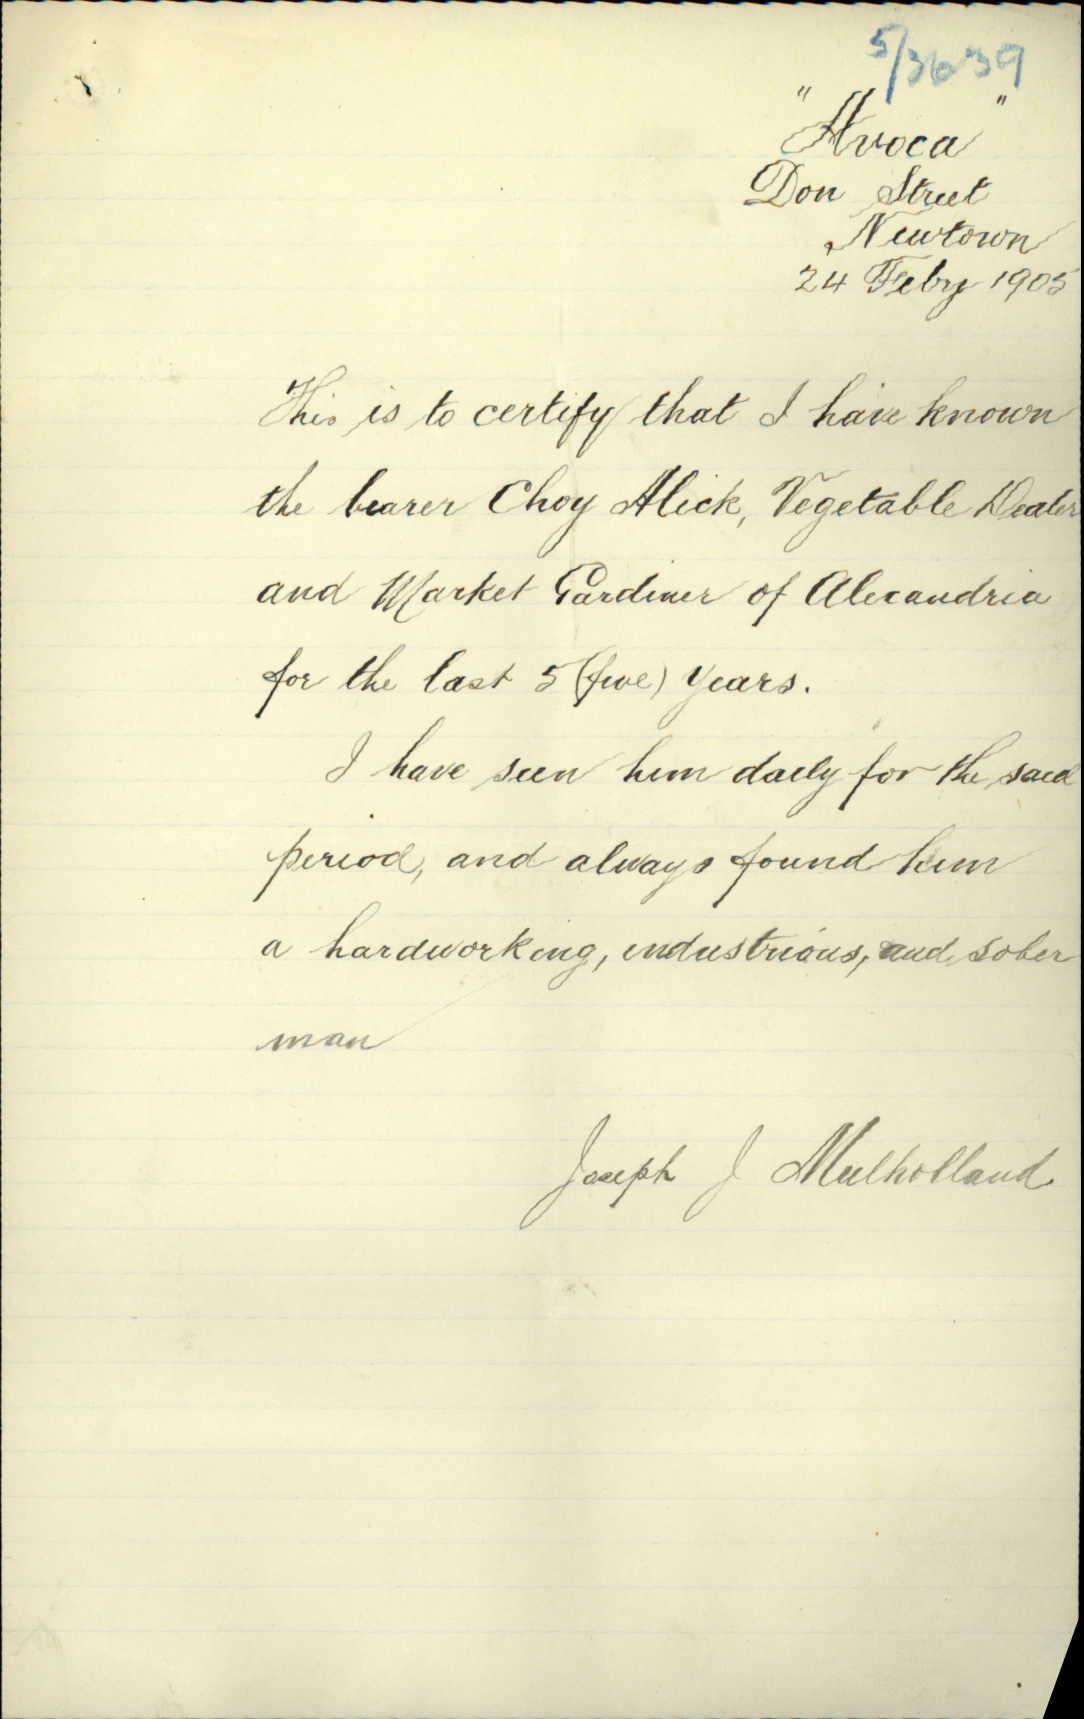 5/3639
"Avoca"
Don Street
Newtown
24 Feby 1905
This is to certify that I have known
the bearer Choy Alick, Vegetable Dealer
and Market Gardiner of Alexandria
for the last 5 (five) years.
I have seen him daily for the said
period, and always found him
a hardworking, industrious, and sober
man
Joseph J Mulholland